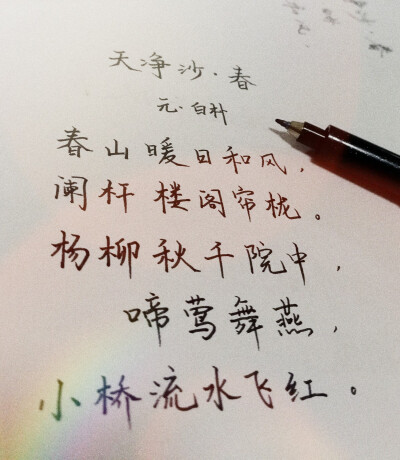 天净沙·春
元·白朴
春山暖日和风，
阑杆楼阁帘栊。
杨柳秋千院中，
啼莺舞燕，
小桥流水飞红。